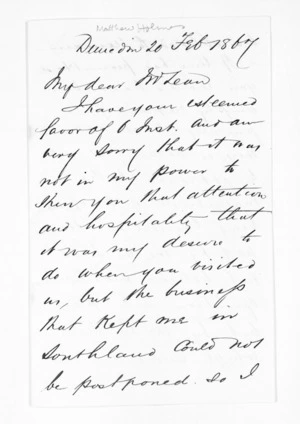 Matthew Holmes
Dunedin 20 Feb 1867
My dear McLean
I have your esteemed
favor of 6 Inst. and am
very sorry that it was
not in my power to
shew you that attention
and hospitality that
it was my desire to
do when you visited
us, but the business
that Kept me in
Southland Could not
be postponed. so I